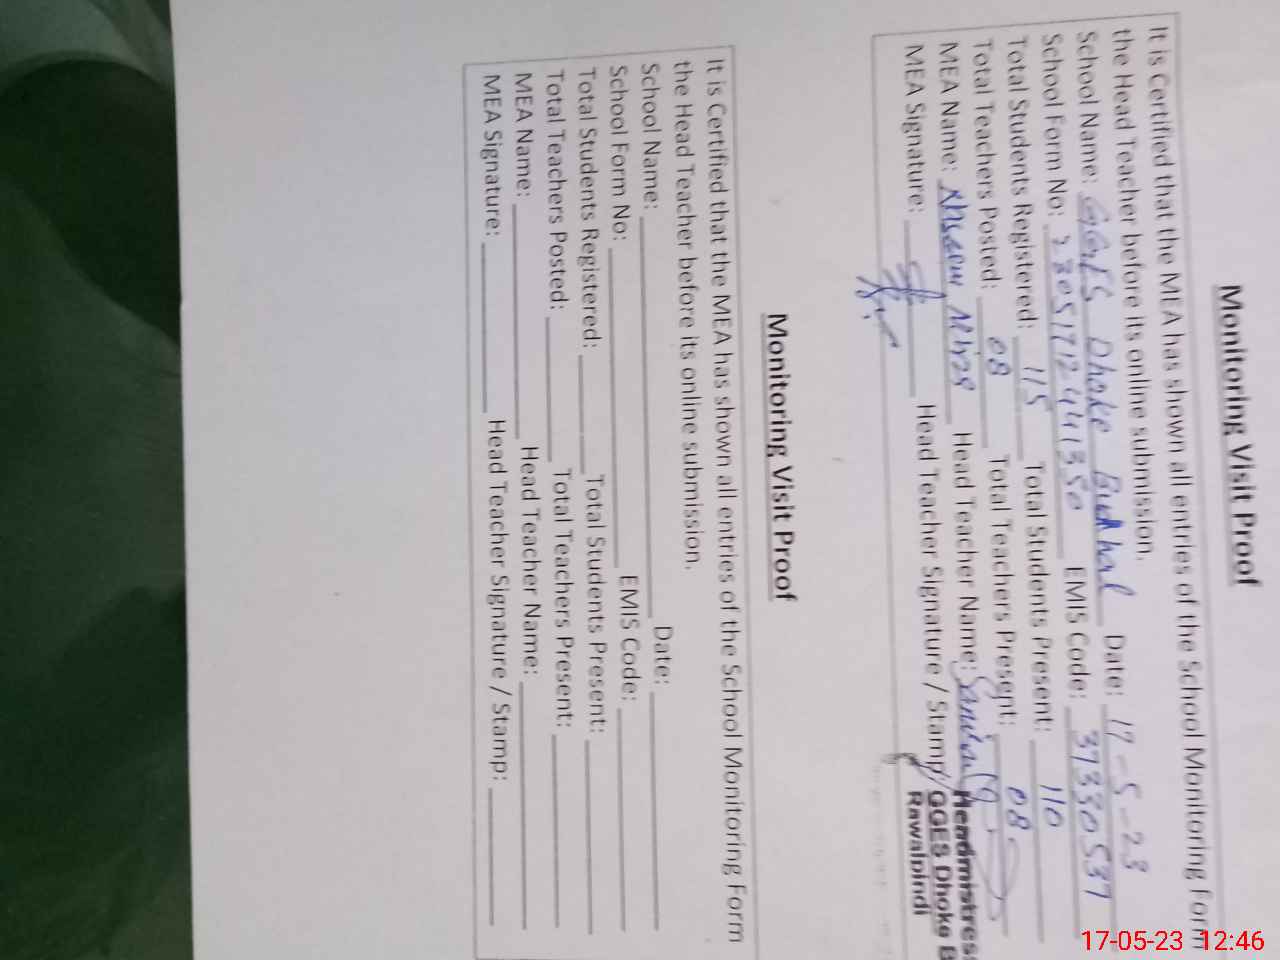 Monitoring Visit Proof
It is Certified that the MEA has shown all entries of the School Monitoring Form
the Head Teacher before its online submission.
School Name: GGES Dhoke Budhal Date: 17-5-23
School Form No: EMIS Code: 37330537
Total Students Registered: 115 Total Students Present: 110
Total Teachers Posted: 08 Total Teachers Present: 08
MEA Name: Head Teacher Name:
MEA Signature: Head Teacher Signature / Stamp:
Headmistres
GGES Dhoke B
Rawalpindi
Monitoring Visit Proof
It is Certified that the MEA has shown all entries of the School Monitoring Form
the Head Teacher before its online submission.
School Name: Date:
School Form No: EMIS Code:
Total Students Registered: Total Students Present:
Total Teachers Posted: Total Teachers Present:
MEA Name: Head Teacher Name:
MEA Signature: Head Teacher Signature / Stamp:
17-05-23 12:46